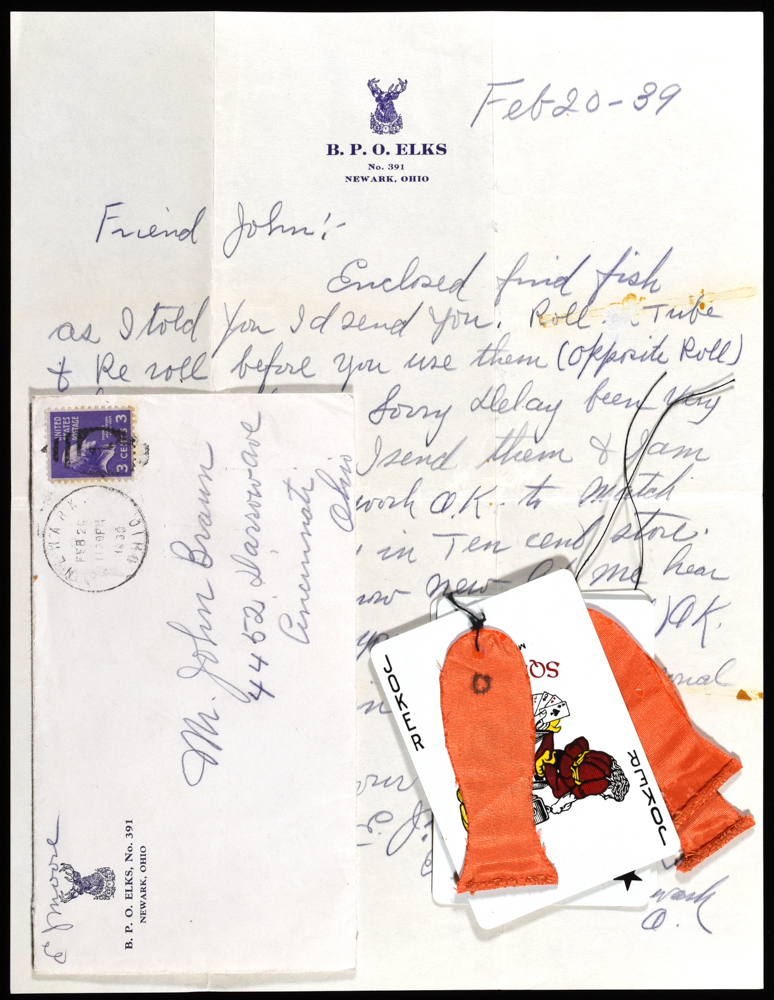 Feb 20-39
B. P. O. ELKS
No. 391
NEWARK, OHIO
Friend John:-
Enclosed find fish
as I told you I'd send you. Roll Tube
& Re roll before you use them (opposite Roll)
Sorry Delay been very
I send them & I am
work O.K. to Match
in Ten cent store.
new me hear
O.K.
work
O.
UNITED
STATES
POSTAGE
3 CENTS 3
NEWARK, OHIO
FEB 2
PM
Mr. John Braun
4452
Cincinnati
Ohio
E Moore
B. P. O. ELKS, No. 391
NEWARK, OHIO
JOKER
SQ
M
JOKER